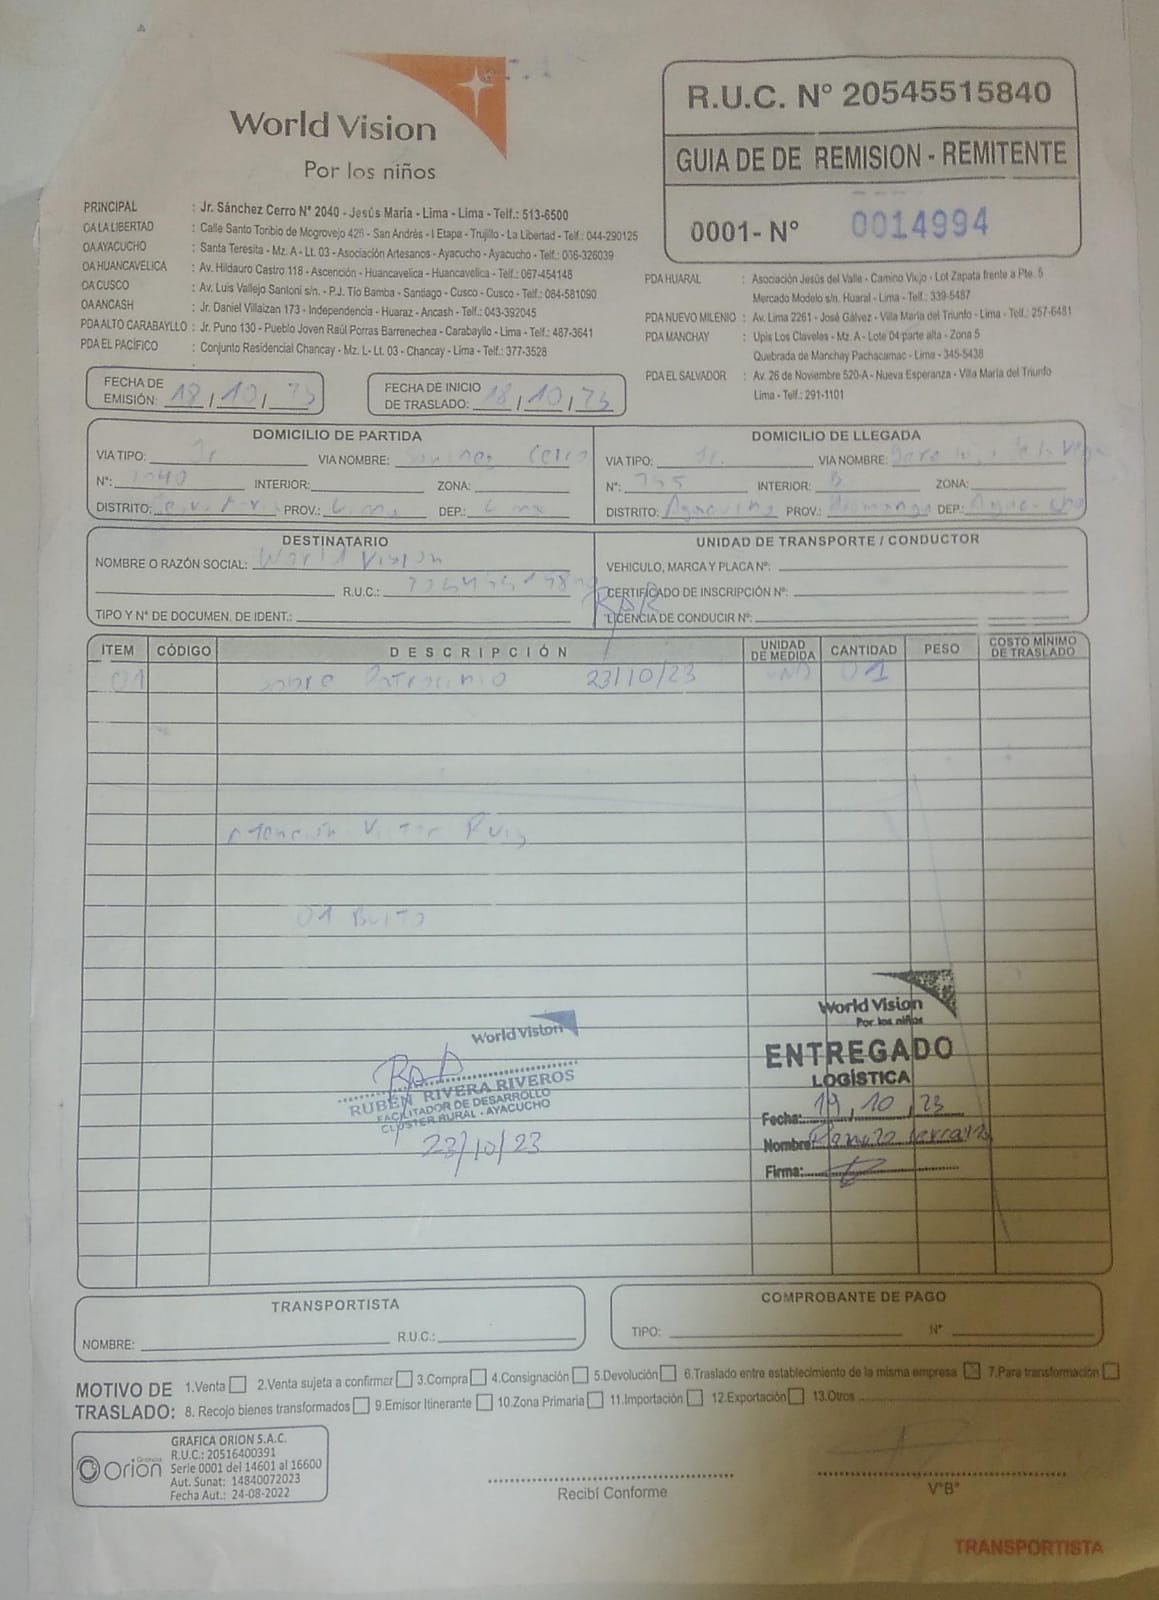 World Vision
Por los niños
R.U.C. N° 20545515840
GUIA DE DE REMISION - REMITENTE
0001- N° 0014994
PRINCIPAL : Jr. Sánchez Cerro N° 2040 - Jesús María - Lima - Lima - Telf.: 513-6500
OA LA LIBERTAD : Calle Santo Toribio de Mogrovejo 426 - San Andrés - I Etapa - Trujillo - La Libertad - Telf.: 044-290125
OA AYACUCHO : Santa Teresita - Mz. A - Lt. 03 - Asociación Artesanos - Ayacucho - Ayacucho - Telf.: 066-326039
OA HUANCAVELICA : Av. Hildauro Castro 118 - Ascención - Huancavelica - Huancavelica - Telf.: 067-454146
OA CUSCO : Av. Luis Vallejo Santoni s/n. - P.J. Tío Bamba - Santiago - Cusco - Cusco - Telf.: 084-581090
OA ANCASH : Jr. Daniel Villaizan 173 - Independencia - Huaraz - Ancash - Telf.: 043-392045
PDA ALTO CARABAYLLO : Jr. Puno 130 - Pueblo Joven Raúl Porras Barrenechea - Carabayllo - Lima - Telf.: 487-3641
PDA EL PACÍFICO : Conjunto Residencial Chancay - Mz. L - Lt. 03 - Chancay - Lima - Telf.: 377-3528
PDA HUARAL : Asociación Jesús del Valle - Camino Viejo - Lot Zapata frente a Pte. 5
Mercado Modelo s/n. Huaral - Lima - Telf.: 339-5487
PDA NUEVO MILENIO : Av. Lima 2261 - José Gálvez - Villa María del Triunfo - Lima - Telf.: 257-6481
PDA MANCHAY : Upis Los Claveles - Mz. A - Lote 04 parte alta - Zona 5
Quebrada de Manchay Pachacamac - Lima - 345-5438
PDA EL SALVADOR : Av. 26 de Noviembre 520-A - Nueva Esperanza - Villa María del Triunfo
Lima - Telf.: 291-1101
FECHA DE EMISIÓN: 18 / 10 / 23
FECHA DE INICIO DE TRASLADO: 18 / 10 / 23
DOMICILIO DE PARTIDA
VIA TIPO: Jr VIA NOMBRE: Sanchez Cerro
N°: 2040 INTERIOR: ZONA:
DISTRITO: PROV.: Lima DEP.: Lima
DOMICILIO DE LLEGADA
VIA TIPO: Jr. VIA NOMBRE: de la Vega
N°: 755 INTERIOR: B ZONA:
DISTRITO: Ayacucho PROV.: Huamanga DEP.: Ayacucho
DESTINATARIO
NOMBRE O RAZÓN SOCIAL: World Vision
R.U.C.: 20545515840
TIPO Y N° DE DOCUMEN. DE IDENT.:
UNIDAD DE TRANSPORTE / CONDUCTOR
VEHICULO, MARCA Y PLACA N°:
CERTIFICADO DE INSCRIPCIÓN N°:
LICENCIA DE CONDUCIR N°:
ITEM CÓDIGO DESCRIPCIÓN UNIDAD DE MEDIDA CANTIDAD PESO COSTO MÍNIMO DE TRASLADO
01 Sobre Patrocinio 23/10/23 UND 01
Atención Victor Ruiz
01 Bulto
World Vision
RUBÉN RIVERA RIVEROS
FACILITADOR DE DESARROLLO
CLUSTER RURAL - AYACUCHO
23/10/23
World Vision
Por los niños
ENTREGADO
LOGÍSTICA
Fecha: 19, 10, 23
Nombre:
Firma:
TRANSPORTISTA
NOMBRE: R.U.C.:
COMPROBANTE DE PAGO
TIPO: N°
MOTIVO DE TRASLADO:
1.Venta 2.Venta sujeta a confirmer 3.Compra 4.Consignación 5.Devolución 6.Traslado entre establecimiento de la misma empresa 7.Para transformación
8. Recojo bienes transformados 9.Emisor Itinerante 10.Zona Primaria 11.Importación 12.Exportación 13.Otros
Orion
GRAFICA ORION S.A.C.
R.U.C.: 20516400391
Serie 0001 del 14601 al 16600
Aut. Sunat: 14840072023
Fecha Aut.: 24-08-2022
Recibí Conforme
V°B°
TRANSPORTISTA